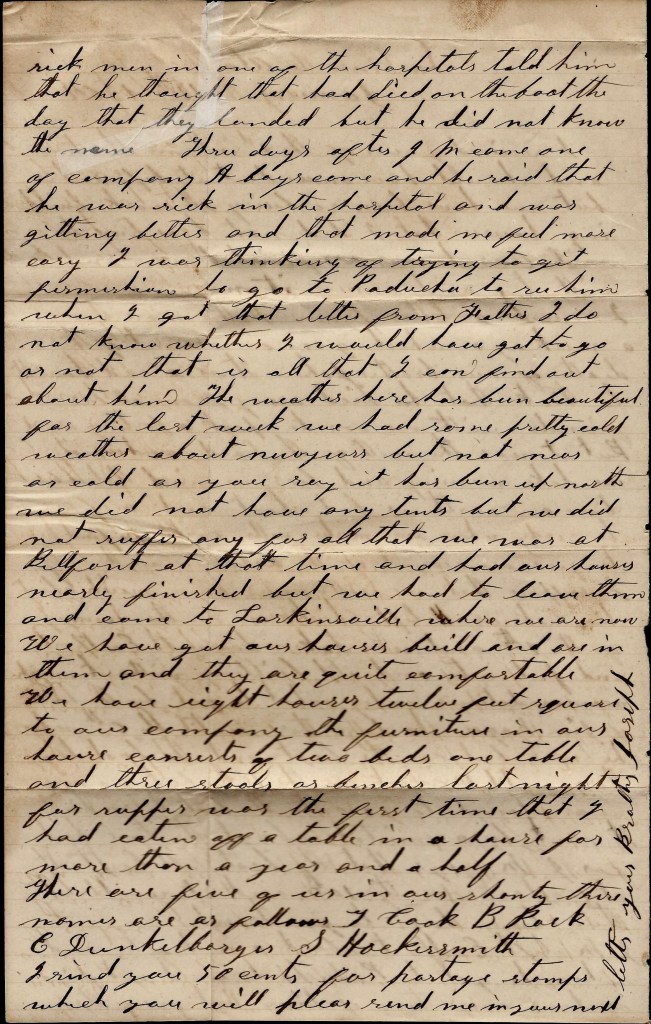 sick men in one of the hospitols told him
that he thought that had died on the boat the
day that they landed but he did not know
the name Three days after J M come one
of company A boys come and he said that
he was sick in the hospital and was
gitting better and that made me feel more
easy I was thinking of trying to git
permishion to go to Paducha to see him
when I got that letter from Father I do
not know whether I would have got to go
or not that is all that I can find out
about him The weather here has bun beautiful
for the last week we had some pretty cold
weather about newyears but not near
as cold as you say it has bun up north
we did not have any tents but we did
not suffer any for all that we was at
Bellfont at that time and had our houses
nearly finished but we had to leave them
and come to Larkinsville where we are now
We have got our houses built and are in
them and they are quite comfortable
We have eight houses twelve feet square
to our company the furniture in our
house consists of two beds one table
and three stools or benches last night
for supper was the first time that I
had eaten off a table in a house for
more than a year and a half
There are five of us in our shanty there
names are as follows T Cook B Rock
E Dunkelbarger S Hockersmith
I send you 50 cents for postage stamps
which you will pleas send me in your next
letter your Brother Joseph